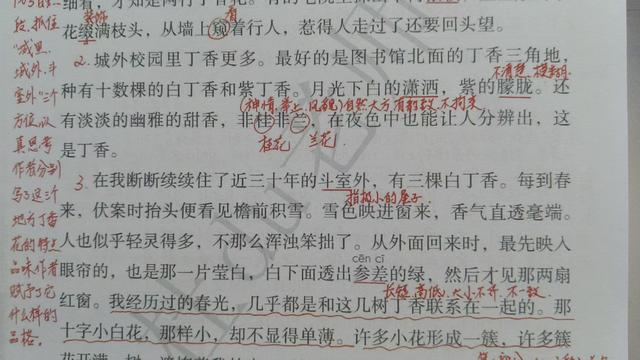 细看，才知是两行丁香花。
段，抓住
装饰
看
花缀满枝头，从墙上窥着行人，惹得人走过了还要回头望。
"城里、
2. 城外校园里丁香更多。最好的是图书馆北面的丁香三角地，
城外、斗
不清楚、模糊
种有十数棵的白丁香和紫丁香。月光下白的潇洒，紫的朦胧。还
室外"三个
(神情、举止、风貌)自然大方有韵致，不拘束
方位，认
有淡淡的幽雅的甜香，非桂非兰，在夜色中也能让人分辨出，这
真思考
是丁香。
桂花 兰花
作者分别
3. 在我断断续续住了近三十年的斗室外，有三棵白丁香。每到春
写了这三个
指极小的屋子
来，伏案时抬头便看见檐前积雪。雪色映进窗来，香气直透毫端。
地方丁香
花的特点
人也似乎轻灵得多，不那么浑浊笨拙了。从外面回来时，最先映人
品味作者
cēn cī
眼帘的，也是那一片莹白，白下面透出参差的绿，然后才见那两扇
赋予了它
长短、高低、大小不齐、不一致
红窗。我经历过的春光，几乎都是和这几树丁香联系在一起的。那
什么样的
十字小白花，那样小，却不显得单薄。许多小花形成一簇，许多簇
品格。